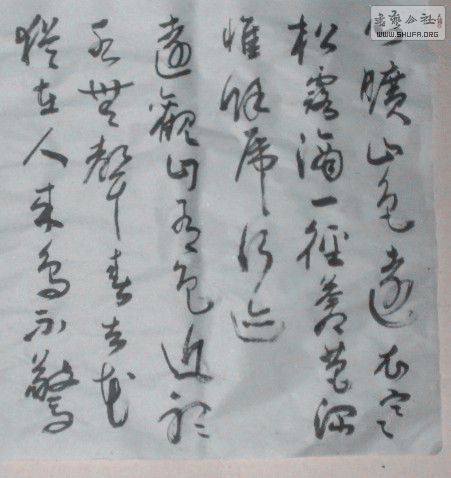 曠山色遠衣寒
松露滴一徑蒼苔深
惟餘虎行迹
遠觀山有色近聽
水無聲春去花
猶在人來鳥不驚
書藝公社
WWW.SHUFA.ORG